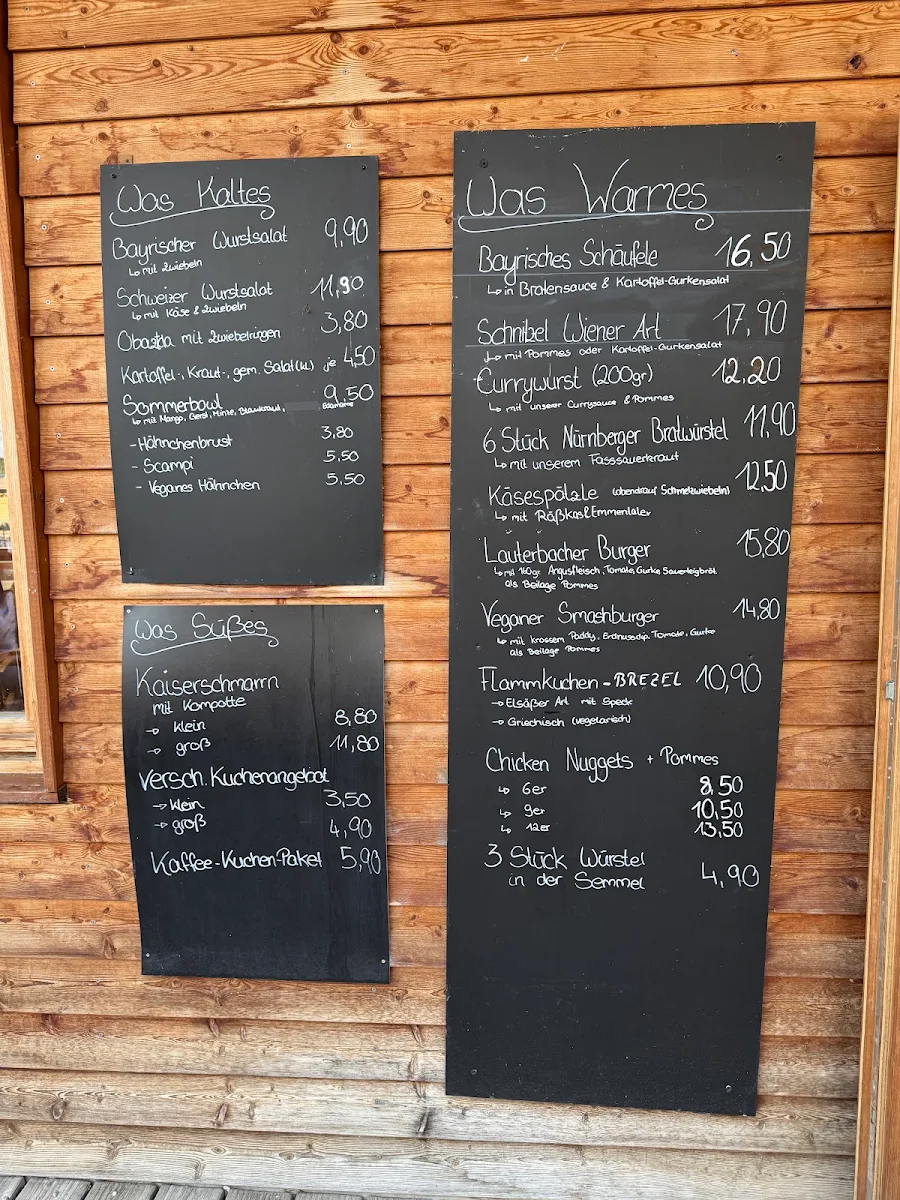 Was Kaltes
Bayrischer Wurstsalat 9,90
↳ mit Zwiebeln
Schweizer Wurstsalat 11,90
↳ mit Käse & Zwiebeln
Obazda mit Zwiebelringen 3,80
Kartoffel-, Kraut-, gem. Salat (kl.) je 4,50
Sommerbowl 9,50
↳ mit Mango, Gerst, Minze, Blaukraut, Edamame
- Hähnchenbrust 3,80
- Scampi 5,50
- Veganes Hähnchen 5,50
Was Süßes
Kaiserschmarrn
mit Kompotte
→ klein 8,80
→ groß 11,80
Versch. Kuchenangebot
→ klein 3,50
→ groß 4,90
Kaffee-Kuchen-Paket 5,90
Was Warmes
Bayrisches Schäufele 16,50
↳ in Bratensauce & Kartoffel-Gurkensalat
Schnitzel Wiener Art 17,90
↳ mit Pommes oder Kartoffel-Gurkensalat
Currywurst (200gr) 12,20
↳ mit unserer Currysauce & Pommes
6 Stück Nürnberger Bratwürstel 11,90
↳ mit unserem Fasssauerkraut
Käsespätzle (obendrauf Schmelzwiebeln) 12,50
↳ mit Räßkas & Emmentaler
Lauterbacher Burger 15,80
↳ mit 160gr. Angusfleisch, Tomate, Gurke Sauerteigbröt
als Beilage Pommes
Veganer Smashburger 14,80
↳ mit krossem Paddy, Erdnussdip, Tomate, Gurke
als Beilage Pommes
Flammkuchen-BREZEL 10,90
→ Elsäßer Art mit Speck
→ Griechisch (vegetarisch)
Chicken Nuggets + Pommes
↳ 6er 8,50
↳ 9er 10,50
↳ 12er 13,50
3 Stück Würstel
in der Semmel 4,90